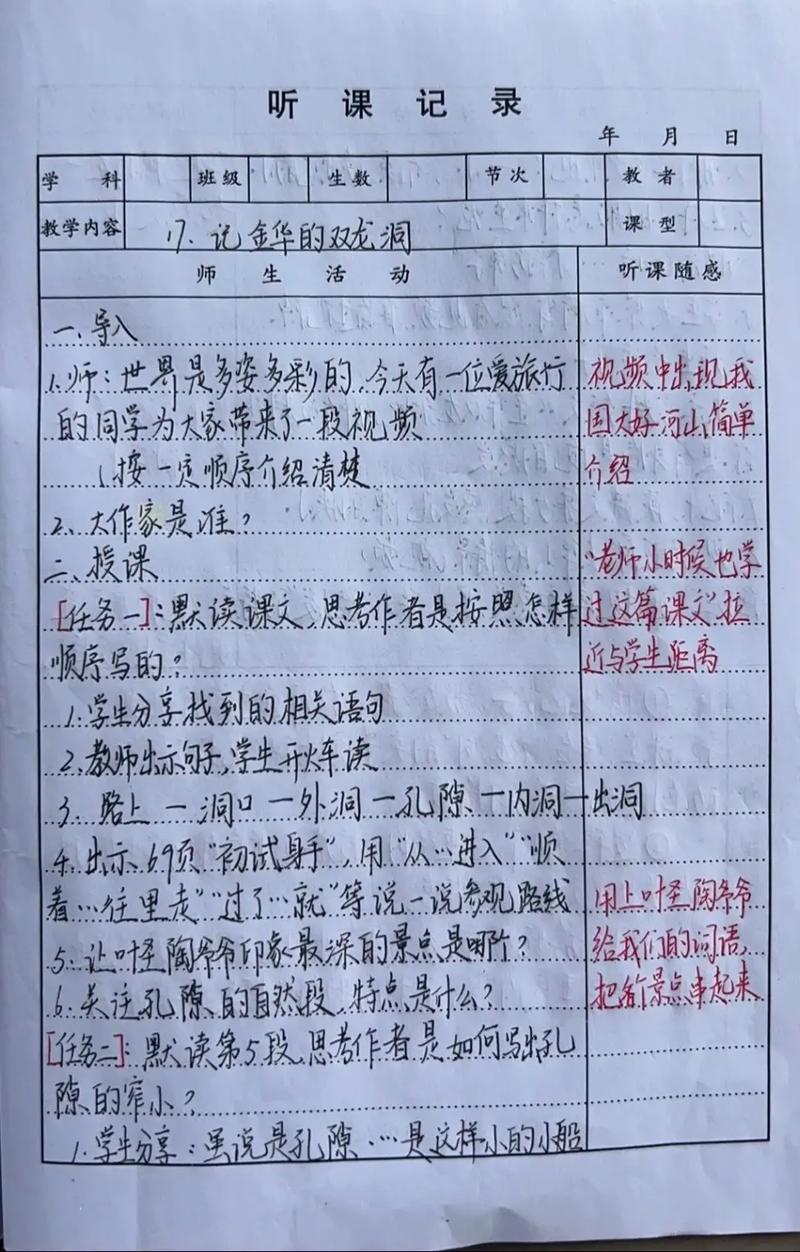 听课记录
年 月 日
学科 班级 生数 节次 教者
教学内容 17.记金华的双龙洞 课型
师生活动 听课随感
一、导入
1.师：世界是多姿多彩的，今天有一位爱旅行
的同学为大家带来了一段视频
(按一定顺序介绍清楚
2、大作家是谁？
二、授课
[任务一]：默读课文，思考作者是按照怎样
顺序写的？
1.学生分享找到的相关语句
2.教师出示句子，学生开火车读
3、路上—洞口—外洞—孔隙—内洞—出洞
4.出示69页"初试身手"，用"从…进入""顺
着…往里走""过了…就"等说一说参观路线
5.让叶圣陶爷爷印象最深的景点是哪个？
6.关注孔隙的自然段，特点是什么？
[任务二]：默读第5段，思考作者是如何写出孔
隙的窄小？
1.学生分享：虽说是孔隙…是这样小的小船
视频中出现我
国大好河山，简单
介绍
"老师小时候也学
过这篇课文"拉
近与学生距离
用上叶圣陶爷爷
给我们的词语，
把各个景点串起来